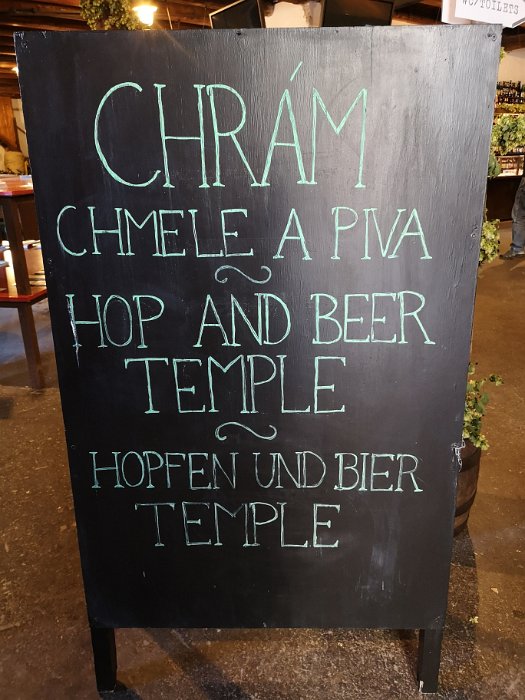 WC/TOILETS
CHRÁM
CHMELE A PIVA
HOP AND BEER
TEMPLE
HOPFEN UND BIER
TEMPLE